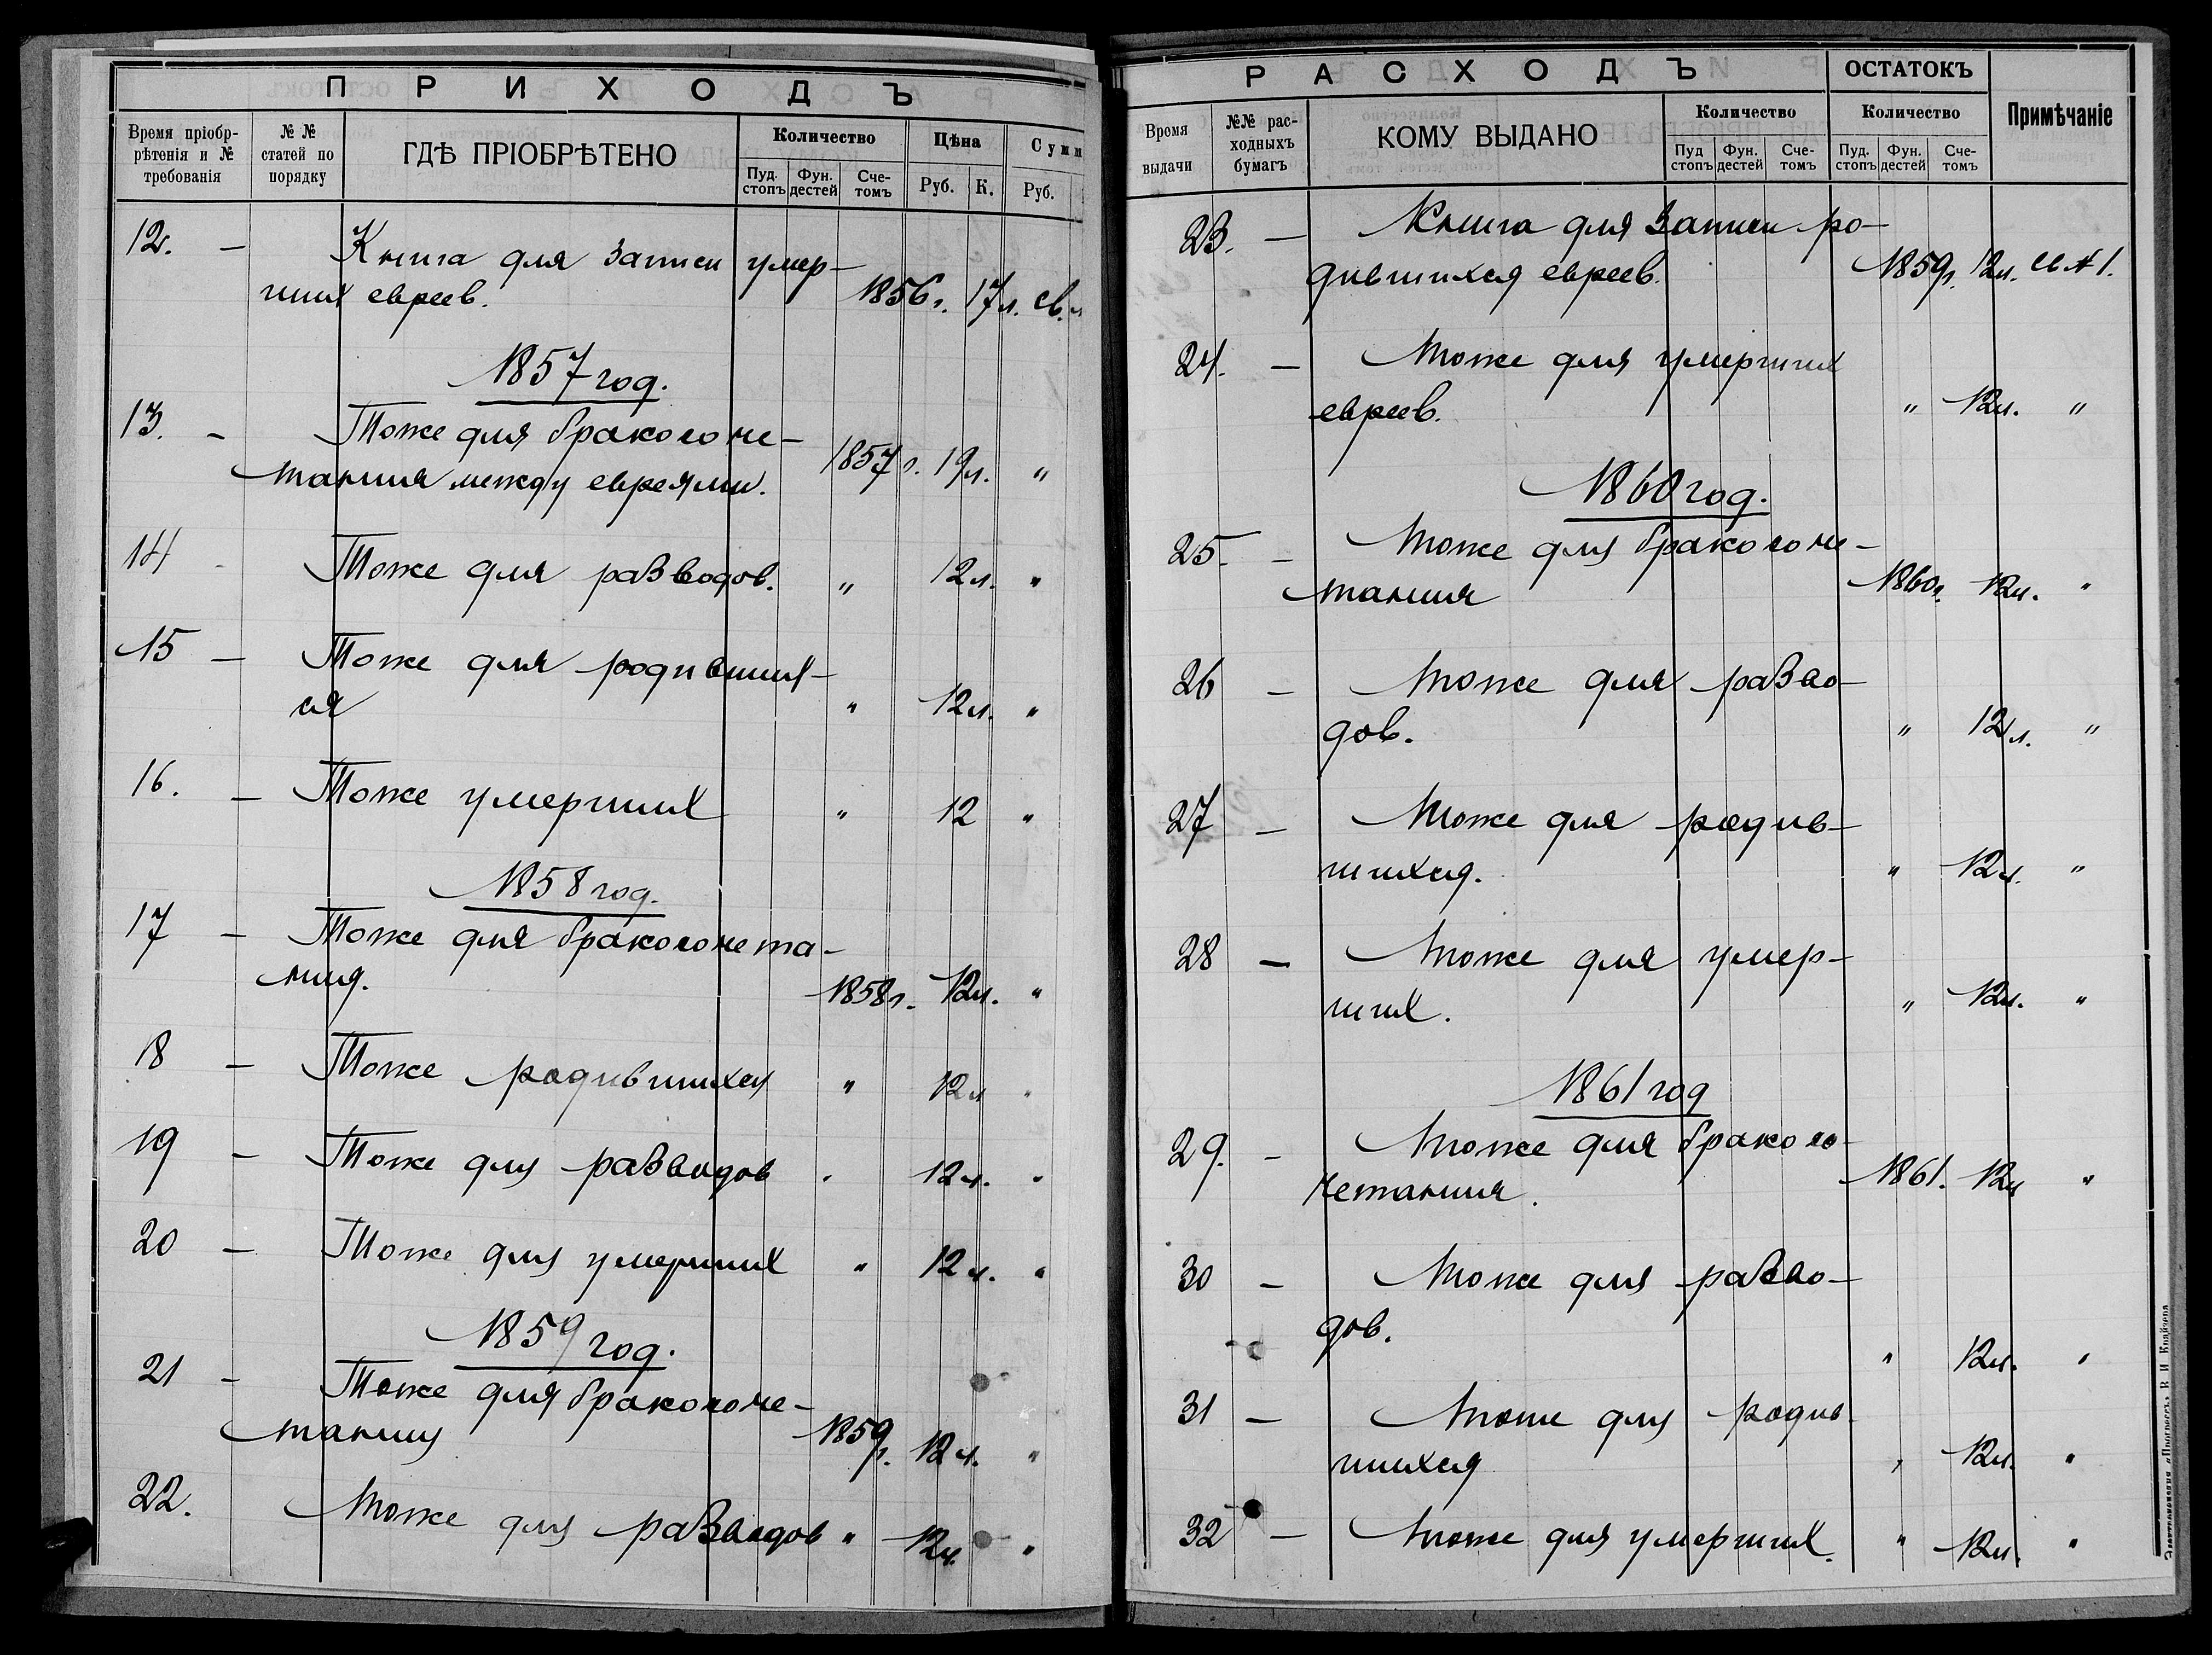 ПРИХОДЪ
Время пріобр-
рѣтенія и №
требованія
№ №
статей по
порядку
ГДѢ ПРІОБРѢТЕНО
Количество
Пуд.
стопъ
Фун.
дестей
Сче-
томъ
Цѣна
Руб.
К.
Сумм
Руб.
12. — Книга для записи умер-
ших евреев. 1856 г. 17 л. св.
1857 год.
13. — Тоже для бракосоче-
тания между евреями. 1857 г. 19 л. "
14 - Тоже для разводов. " 12 л. "
15 — Тоже для родивших-
ся " 12 л. "
16. — Тоже умерших " 12 "
1858 год.
17 — Тоже для бракосочета-
ния. 1858 г. 12 л. "
18 — Тоже родившихся " 12 л "
19 — Тоже для разводов " 12 л. "
20 — Тоже для умерших " 12 л. "
1859 год.
21 — Тоже для бракосоче-
тания 1859 г. 12 л. "
22. Тоже для разводов " 12 л. "
РАСХОДЪ
ОСТАТОКЪ
Время
выдачи
№№ рас-
ходныхъ
бумагъ
КОМУ ВЫДАНО
Количество
Пуд
стопъ
Фун.
дестей
Сче-
томъ
Количество
Пуд.
стопъ
Фун.
дестей
Сче-
томъ
Примѣчаніе
23. — Книга для записи ро-
дившихся евреев. 1859 г. 12 л. св № 1.
24. — Тоже для умерших
евреев. " 12 л. "
1860 год.
25. — Тоже для бракосоче-
тания 1860 г. 12 л. "
26 — Тоже для разво-
дов. " 12 л. "
27 — Тоже для родив-
шихся. " 12 л. "
28 — Тоже для умер-
ших. " 12 л. "
1861 год
29. — Тоже для бракосо-
четания. 1861. 12 л "
30 — Тоже для разво-
дов. " 12 л. "
31 — Тоже для родив-
шихся " 12 л. "
32 — Тоже для умерших. " 12 л. "